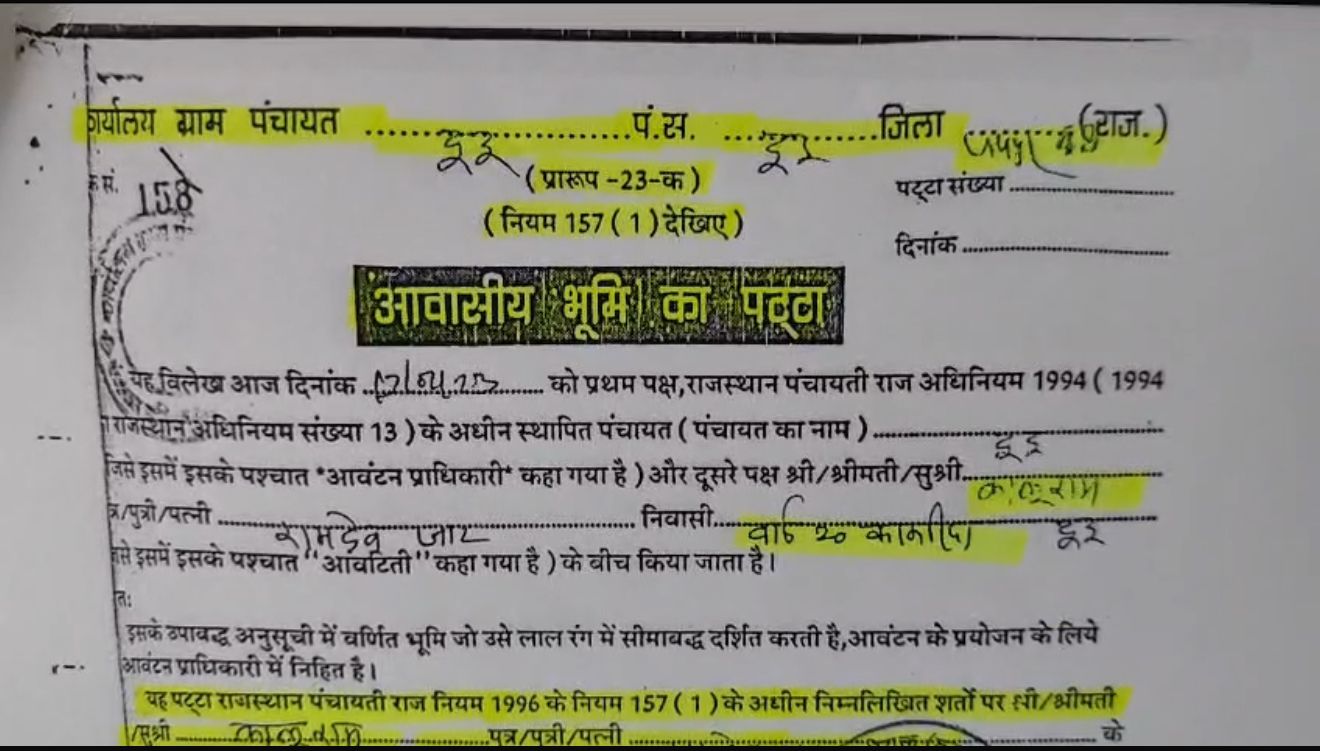 कार्यालय ग्राम पंचायत ........दूदू........पं.स. ....दूदू....जिला जयपुर (राज.)
(प्रारूप -23-क)
क्र सं. 158
पट्टा संख्या ........................
(नियम 157 ( 1 ) देखिए)
दिनांक ........................
आवासीय भूमि का पट्टा
यह विलेख आज दिनांक ........ को प्रथम पक्ष,राजस्थान पंचायती राज अधिनियम 1994 ( 1994
राजस्थान अधिनियम संख्या 13 ) के अधीन स्थापित पंचायत ( पंचायत का नाम ) ........ दूदू
जिसे इसमें इसके पश्चात "आवंटन प्राधिकारी" कहा गया है ) और दूसरे पक्ष श्री/श्रीमती/सुश्री........ कालूराम
त्र/पुत्री/पत्नी ........ रामदेव जाट ........ निवासी........ वार्ड 20 दूदू
जिसे इसमें इसके पश्चात "आवंटिती" कहा गया है ) के बीच किया जाता है।
तः
इसके उपाबद्ध अनुसूची में वर्णित भूमि जो उसे लाल रंग में सीमाबद्ध दर्शित करती है,आवंटन के प्रयोजन के लिये
आवंटन प्राधिकारी में निहित है।
यह पट्टा राजस्थान पंचायती राज नियम 1996 के नियम 157 ( 1 ) के अधीन निम्नलिखित शर्तों पर श्री/श्रीमती
/सुश्री ........ कालूराम ........ पुत्र/पुत्री/पत्नी ........ के